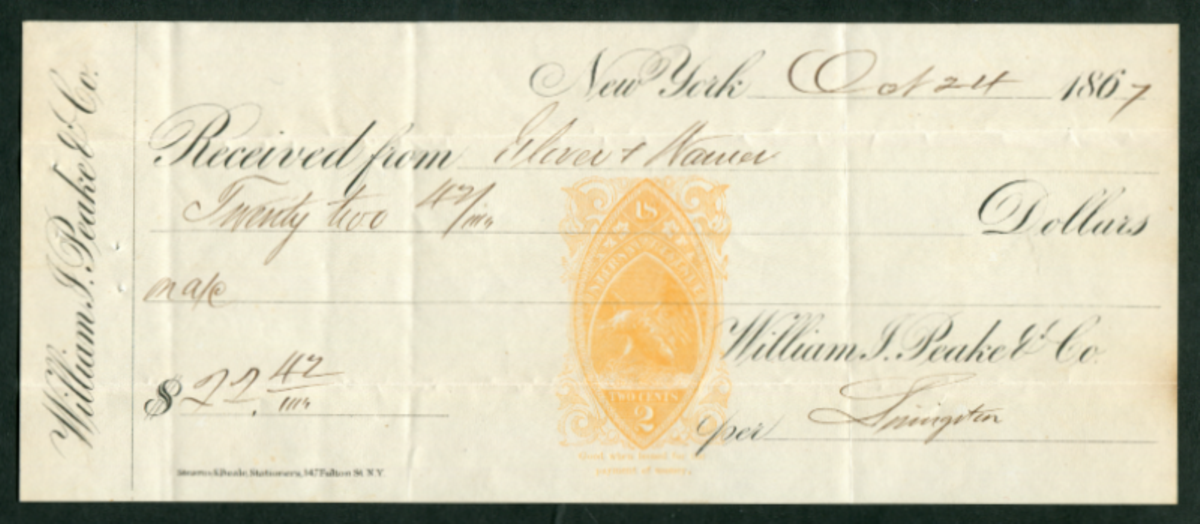 William I. Peake & Co.
New York Oct 24 1867
Received from Glover &
Twenty two 42/100 Dollars
on a/c
U.S.
INTER. REVENUE
TWO CENTS
2
Good when issued for
payment of money.
$ 22. 42/100
William I. Peake & Co.
per
Stationers, 147 Fulton St. N.Y.